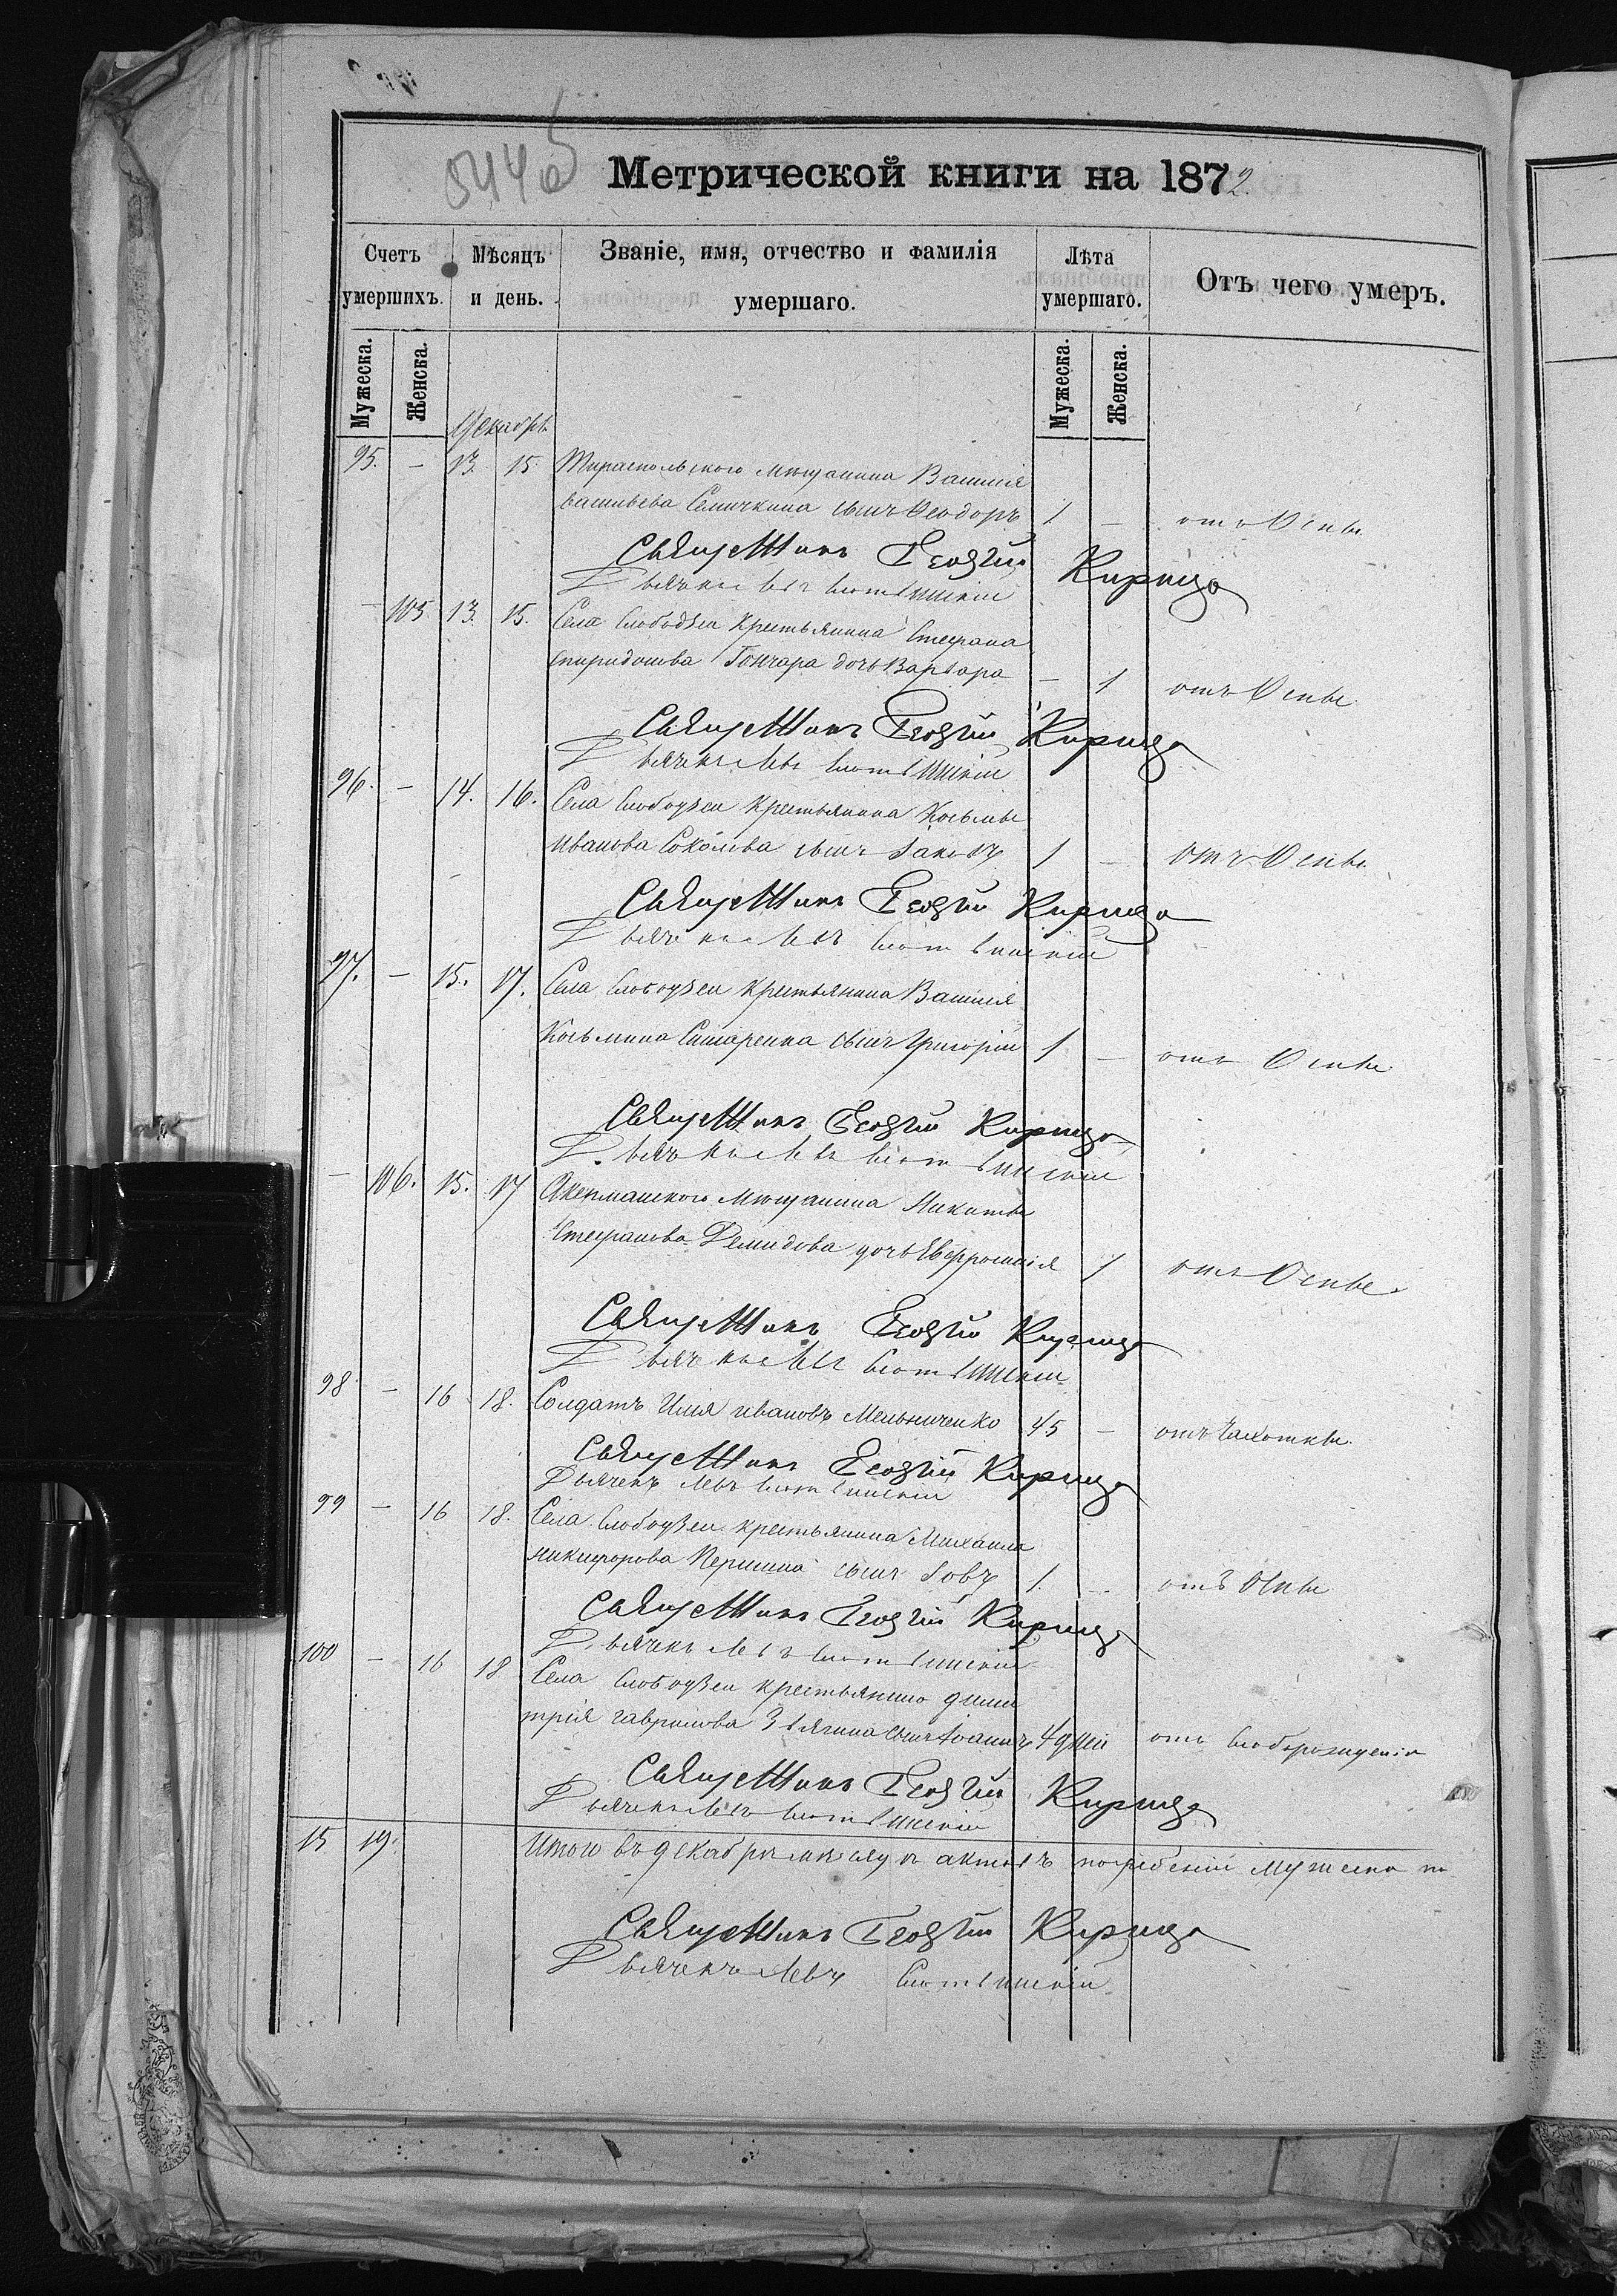 Метрической книги на 1872.
Счетъ умершихъ. Мѣсяцъ и день. Званіе, имя, отчество и фамилія умершаго. Лѣта умершаго. Отъ чего умеръ.
Мужеска. Женска. Мужеска. Женска.
Декабрь
95. — 13. 15. Тираспольского мѣщанина Василія
васильева Семичкина сынъ Ѳеодоръ 1 — отъ Оспы
Священникъ Георгій Кирица
Дьячекъ Левъ
— 105. 13. 15. Села Слободзеи крестьянина Стефана
спиридонова Гончара дочь Варвара — 1 отъ Оспы.
Священникъ Георгій Кирица
Дьячекъ Левъ
96. — 14. 16. Села Слободзеи крестьянина Косьмы
иванова Соколова сынъ Іаковъ 1 — отъ Оспы.
Священникъ Георгій Кирица
Дьячекъ Левъ
97. — 15. 17. Села Слободзеи крестьянина Василія
Косьмина Ситаренка сынъ Григорій 1 — отъ Оспы
Священникъ Георгій Кирица
Дьячекъ Левъ
— 106. 15. 17 Акерманского мѣщанина Никиты
Стефанова Демидова дочь Евфросинія 1 отъ Оспы.
Священникъ Георгій Кирица
Дьячекъ Левъ
98. — 16 18. Солдатъ Илія ивановъ Мельниченко 45 — отъ Чахотки.
Священникъ Георгій Кирица
Дьячекъ Левъ
99 — 16 18. Села Слободзеи крестьянина Михаила
никифорова Першина сынъ Іовъ 1. — отъ Оспы
Священникъ Георгій Кирица
Дьячекъ Левъ
100 — 16 18 Села Слободзеи крестьянина дими
трія гаврилова Звягина сынъ Іоаннъ 4 дней отъ Слаборожденія
Священникъ Георгій Кирица
Дьячекъ Левъ
15 19. Итого въ декабрѣ мѣсяцѣ актовъ погребеній мужеска по
Священникъ Георгій Кирица
Дьячекъ Левъ